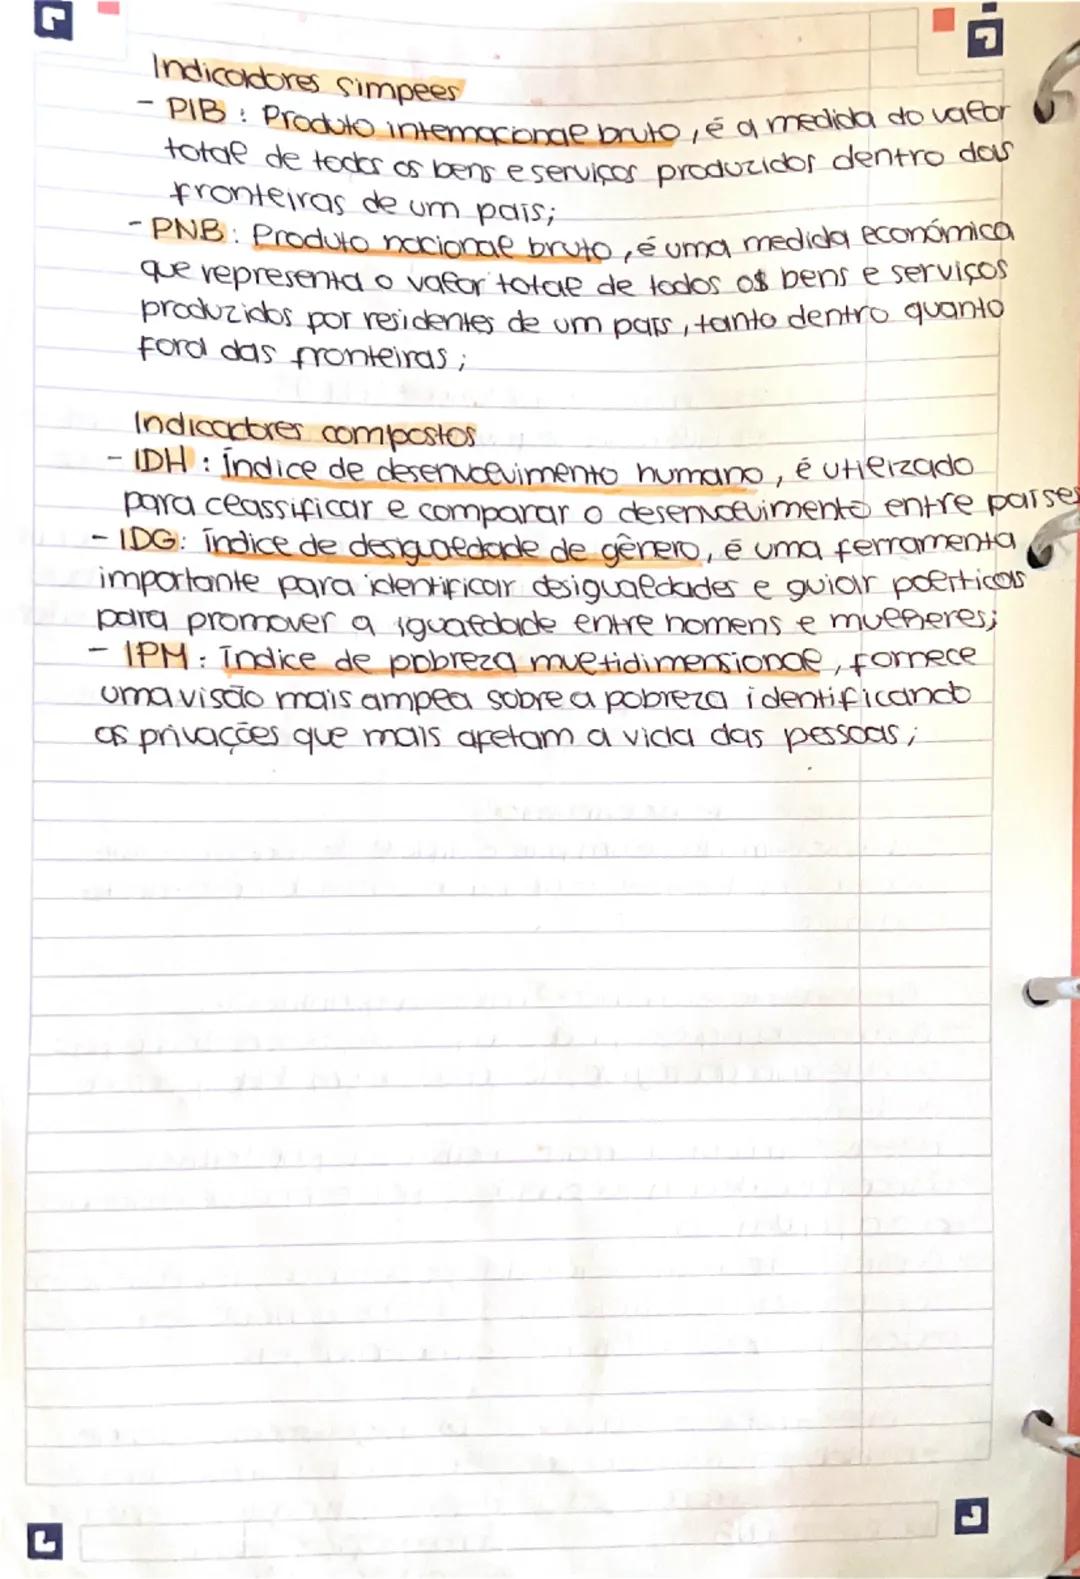 Indicadores simples
- PIB : Produto internacional bruto, é a medida do valor
total de todos os bens e serviços produzidos dentro das
fronteiras de um país;
- PNB : Produto nacional bruto, é uma medida económica
que representa o valor total de todos os bens e serviços
produzidos por residentes de um país, tanto dentro quanto
fora das fronteiras;
Indicadores compostos
- IDH : Índice de desenvolvimento humano, é utilizado
para classificar e comparar o desenvolvimento entre países
- IDG: Índice de desigualdade de gênero, é uma ferramenta
importante para identificar desigualdades e guiar políticas
para promover a igualdade entre homens e mulheres;
- IPM : Índice de pobreza multidimensional, fornece
uma visão mais ampla sobre a pobreza identificando
as privações que mais afetam a vida das pessoas;